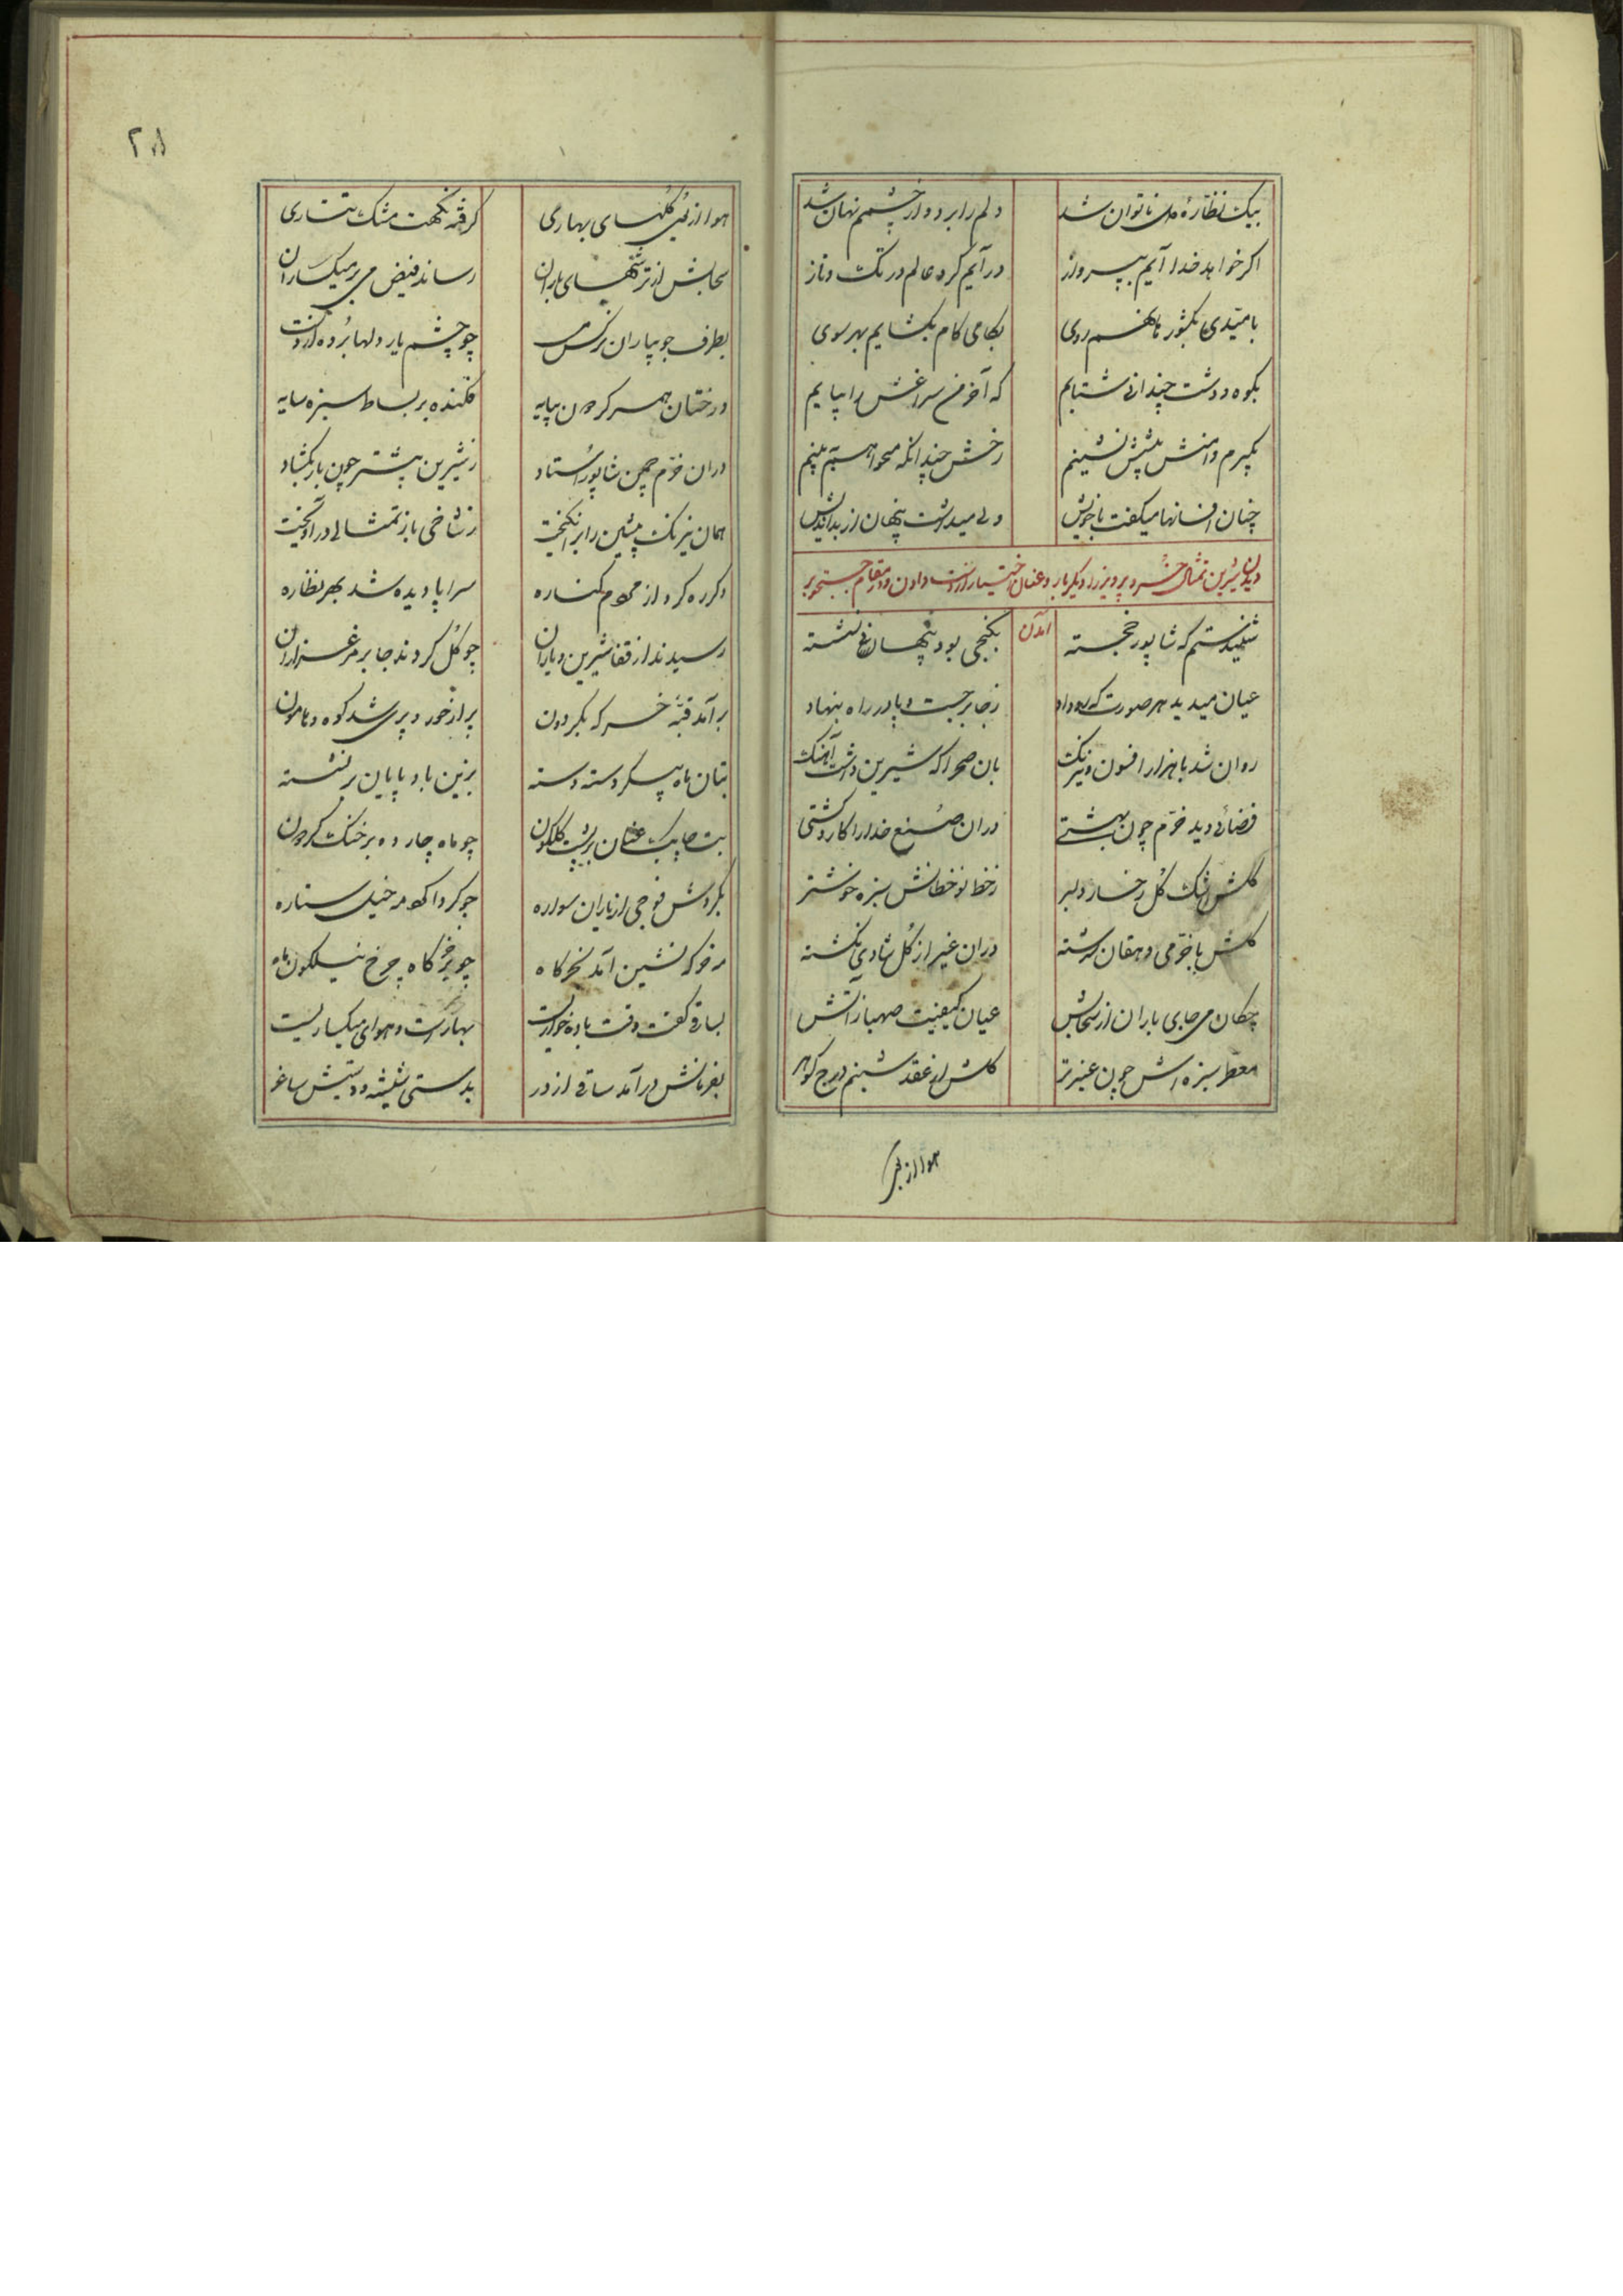 بیک نظاره دل ناتوان شد دلم را برد و از چشمم نهان شد
اکر خواهد خدا آیم بپرواز درآیم کرد عالم در تک و تاز
بامیدی بکشور روی بکامی کام بکشایم بهر سوی
بکوه و دشت چندانی شتابم که آخر من سراغش را بیابم
بکیرم دامنش پیشش نشینم رخش چندانکه میخواهم به بینم
چنان افسانها میکفت با خویش ولی میداشت پنهان از بداندیش
دیدن شیرین تمثال خسرو پرویز را دیکر بار و عنان اختیار از دست دادن و در مقام جستجو بر
آمدن
شنیدستم که شاپور خجسته بکنجی بود پنهانی نشسته
عیان میدید هر صورت که رو داد ز جا برجست و پا در راه بنهاد
روان شد با هزار افسون و نیرنک بان صحرا که شیرین داشت آهنک
فضائی دید خرم چون بهشتی دران صنع خدا را کار و کشتی
کلش رشک کل رخسار دلبر ز خط نوخطانش سبزه خوشتر
کلش با خرمی دهقان سرشته دران غیر از کل شادی نکشته
چکان می جای باران از سحابش عیان کیفیت صهبا ز آبش
معطر سبزه اش چون عنبر تر کلش از عقد شبنم درج کوهر
هوا از بوی
۲۸
هوا از بوی کلهای بهاری کرفته نکهت مشک تتاری
سحابش از ترشحهای باران رساند فیض می بر میکساران
بطرف جویباران نرکس مست چو چشم یار دلها برده از دست
درختان همسر کردون بپایه فکنده بر بساط سبزه سایه
دران خرم چمن شاپور استاد ز شیرین پیشتر چون بار بکشاد
همان نیرنک پیشین را برانکیخت ز شاخی باز تمثالی درآویخت
دکر ره کرد از مردم کناره سراپا دیده شد بهر نظاره
رسیدند از قفا شیرین و یاران چو کل کردند جا بر مرغزاران
برآمد قبه خرکه بکردون پر از خور و پری شد کوه و هامون
بتان ماه پیکر دسته دسته بزین باد پایان برنشسته
بت چابک عنان بر پشت کلکون چو ماه چارده بر خنک کردون
بکردش فوجی از یاران سواره چو کرداکرد مه خیل ستاره
مه خرکه نشین آمد بخرکاه چو بر خرکاه چرخ نیلکون ماه
بساقی کفت وقت باده خواریست بهارست و هوای میکساریست
بفرمانش درآمد ساقی از در بدستی شیشه و دستیش ساغر